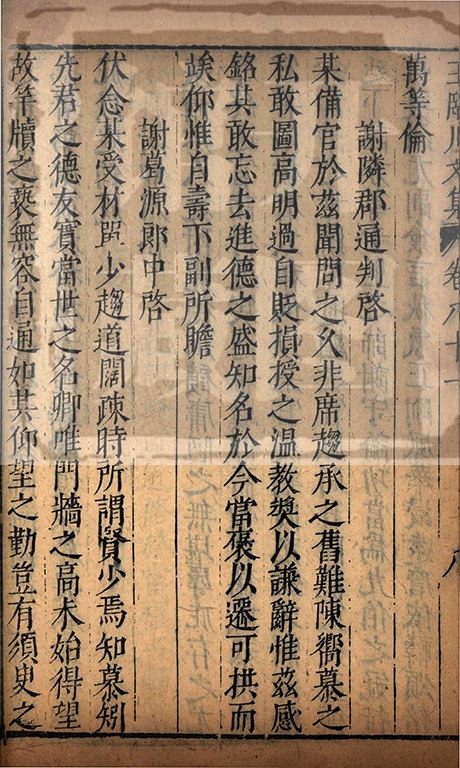 王臨川文集 卷八十一 八
萬等倫
謝隣郡通判啓
某備官於茲聞問之久非席趨承之舊難陳嚮慕之
私敢圖高明過自貶損授之温教奬以謙辭惟茲感
銘其敢忘去進德之盛知名於今當褒以遷可拱而
竢仰惟自壽下副所瞻
謝葛源郎中啓
伏念某受材單少趨道闊疎時所謂賢少焉知慕矧
先君之德友實當世之名卿唯門牆之高未始得望
故竿牘之䙝無容自通如其仰望之勤豈有須臾之